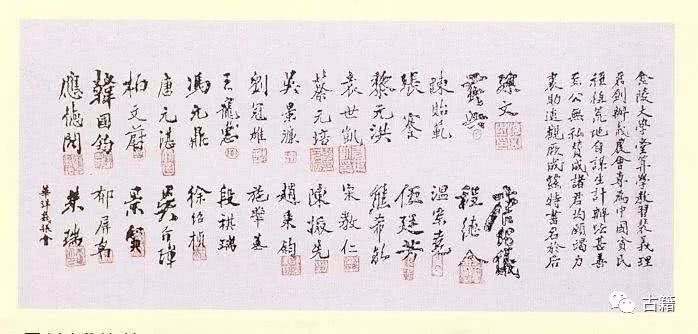 金陵大學堂算學教習裴義理
君創辦義農會專為中國貧民
種植荒地自謀生計辦法甚善
至公無私贊成諸君均願竭力
襄助追觀厥成茲特書名於后
孫文 唐紹儀
黃興 程德全
陳貽範 溫宗堯
張謇 伍廷芳
黎元洪 熊希齡
袁世凱 宋教仁
蔡元培 陳振先
吳景濂 趙秉鈞
劉冠雄 施肇基
王寵惠 段祺瑞
馮元鼎 徐紹楨
唐元湛 吳介璋
柏文蔚
韓國鈞 郁屏翰
應德閎 朱瑞
華洋義賑會
古籍